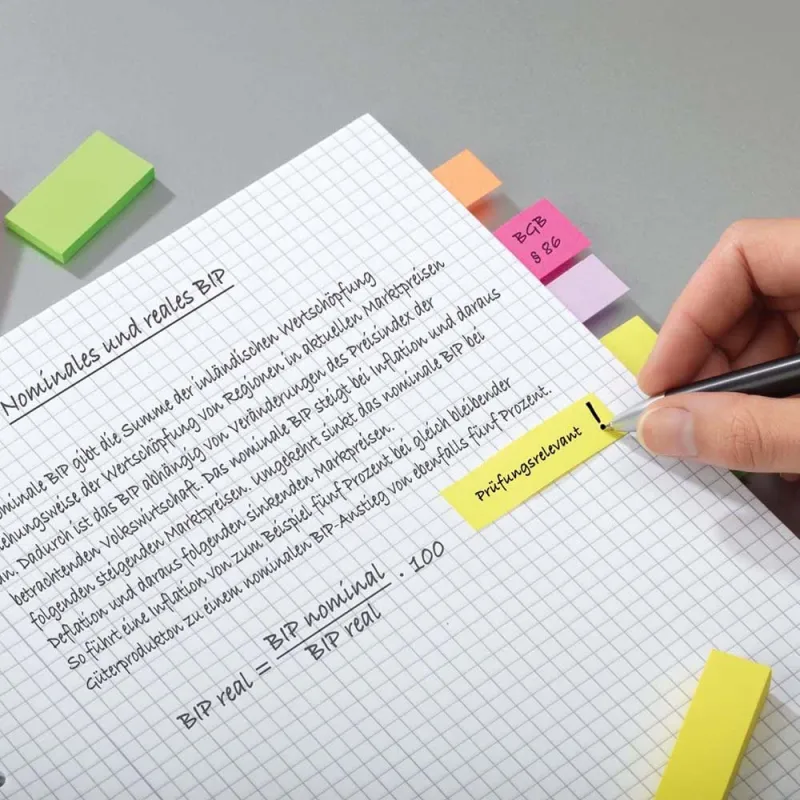 Nominales und reales BIP
ominale BIP gibt die Summe der inländischen Wertschöpfung
iehungsweise der Wertschöpfung von Regionen in aktuellen Marktpreisen
an. Dadurch ist das BIP abhängig von Veränderungen des Preisindex der
betrachtenden Volkswirtschaft. Das nominale BIP steigt bei Inflation und daraus
folgenden steigenden Marktpreisen. Umgekehrt sinkt das nominale BIP bei
Deflation und daraus folgenden sinkenden Marktpreisen.
So führt eine Inflation von zum Beispiel fünf Prozent bei gleich bleibender
Güterprodukton zu einem nominalen BIP-Anstieg von ebenfalls fünf Prozent.
BIP real = BIP nominal · 100
BIP real
BGB
§ 86
Prüfungsrelevant !